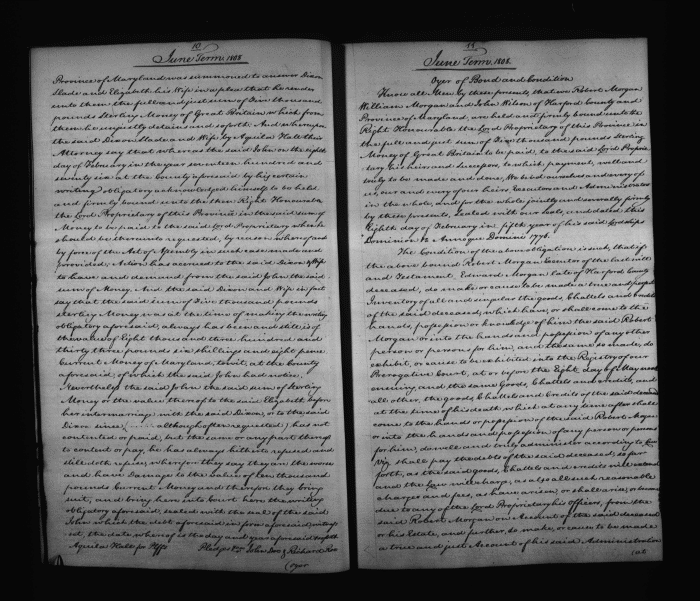 10
June Term, 1808
Province of Maryland was summoned to answer Dixon
Slade and Elizabeth his Wife in a plea that he render
unto them the full and just sum of Five thousand
pounds Sterling Money of Great Britain which from
them he unjustly detains and so forth And whereupon
the said Dixon Slade and Wife by Aquila Hall their
Attorney say that whereas the said John on the eighth
day of February in the year seventeen hundred and
seventy six at the County aforesaid by his certain
writing obligatory acknowledged himself to be held
and firmly bound unto the then Right Honourable
the Lord Proprietary of this Province in the said sum of
Money to be paid to the said Lord Proprietary when he
should be thereunto requested, by reason whereof and
by force of the Act of Assembly in such case made and
provided, Action has accrued to the said Dixon & Wife
to have and demand from the said John the said
sum of Money. And the said Dixon and Wife in fact
say that the said sum of Five thousand pounds
sterling Money was at the time of making the writing
obligatory aforesaid, always has been and still is of
the value of Eight thousand and three hundred and
thirty three pounds six shillings and eight pence
Current Money of Maryland, to wit, at the County
aforesaid, of which the said John had notice,
Nevertheless the said John the said sum of Sterling
Money or the value thereof to the said Elizabeth before
her intermarriage with the said Dixon, or to the said
Dixon since, although often requested) has not
contented or paid, but the same or any part thereof
to content or pay, he has always hitherto refused and
still doth refuse, wherefore they say they are the worse
and have Damage to the value of ten thousand
pounds Current Money and therefore they bring
suit, and bring here into Court here the writing
obligatory aforesaid, sealed with the seal of the said
John which the debt aforesaid in form aforesaid
the date whereof is the day and year aforesaid
Aquila Hall for Plffs Pledges John Doe & Richard Roe
(oyer
11
June Term, 1808.
Oyer of Bond and Condition
Know all Men by these presents, that we Robert Morgan
William Morgan and John Wilson of Harford County and
Province of Maryland, are held and firmly bound unto the
Right Honourable the Lord Proprietary of this Province in
the full and just sum of Five thousand pounds Sterling
Money of Great Britain to be paid, to the said Lord Proprie
tary, his heirs and successors, to which payment, well and
truly to be made and done, We bind ourselves and every of
us, our and every of our heirs, Executors and Administrators
in the whole, and for the whole jointly and severally firmly
by these presents, sealed with our seals, and dated this
Eighth day of February in fifth year of his said Lordships
Dominion &c Annoque Domini 1776.
The Condition of the above obligation is such, that if
the above bound Robert Morgan Executor of the last will
and Testament, Edward Morgan late of Harford County
deceased, do make or cause to be made a true and perfect
Inventory of all and singular the goods, Chattels and Credits
of the said deceased, which have, or shall come to the
hands, possession or knowledge of him the said Robert
Morgan or into the hands and possession of any other
person or persons for him, and the same so made, do
exhibit, or cause to be exhibited into the Registry of our
Prerogative Court, at or before the Eight day of May next
ensuing, and the same Goods, Chattels and Credits, and
all other, the goods, Chattels and Credits of the said deceased
at the time of his death which at any time after shall
come to the hands or possession of the said Robert Morgan
or into the hands and possession of any person or persons
for him, do well and truly administer according to Law
Viz. shall pay the debts of the said deceased, so far
forth, as the said goods, Chattels and credits will extend
and the Law will charge, as also all such reasonable
charges and fees, as have arisen, or shall arise, or become
due to any of the Lord Proprietary his officers, from the
said Robert Morgan on Account of the said deceased
or his Estate, and further, do make, or cause to be made
a true and just Account of his said Administration